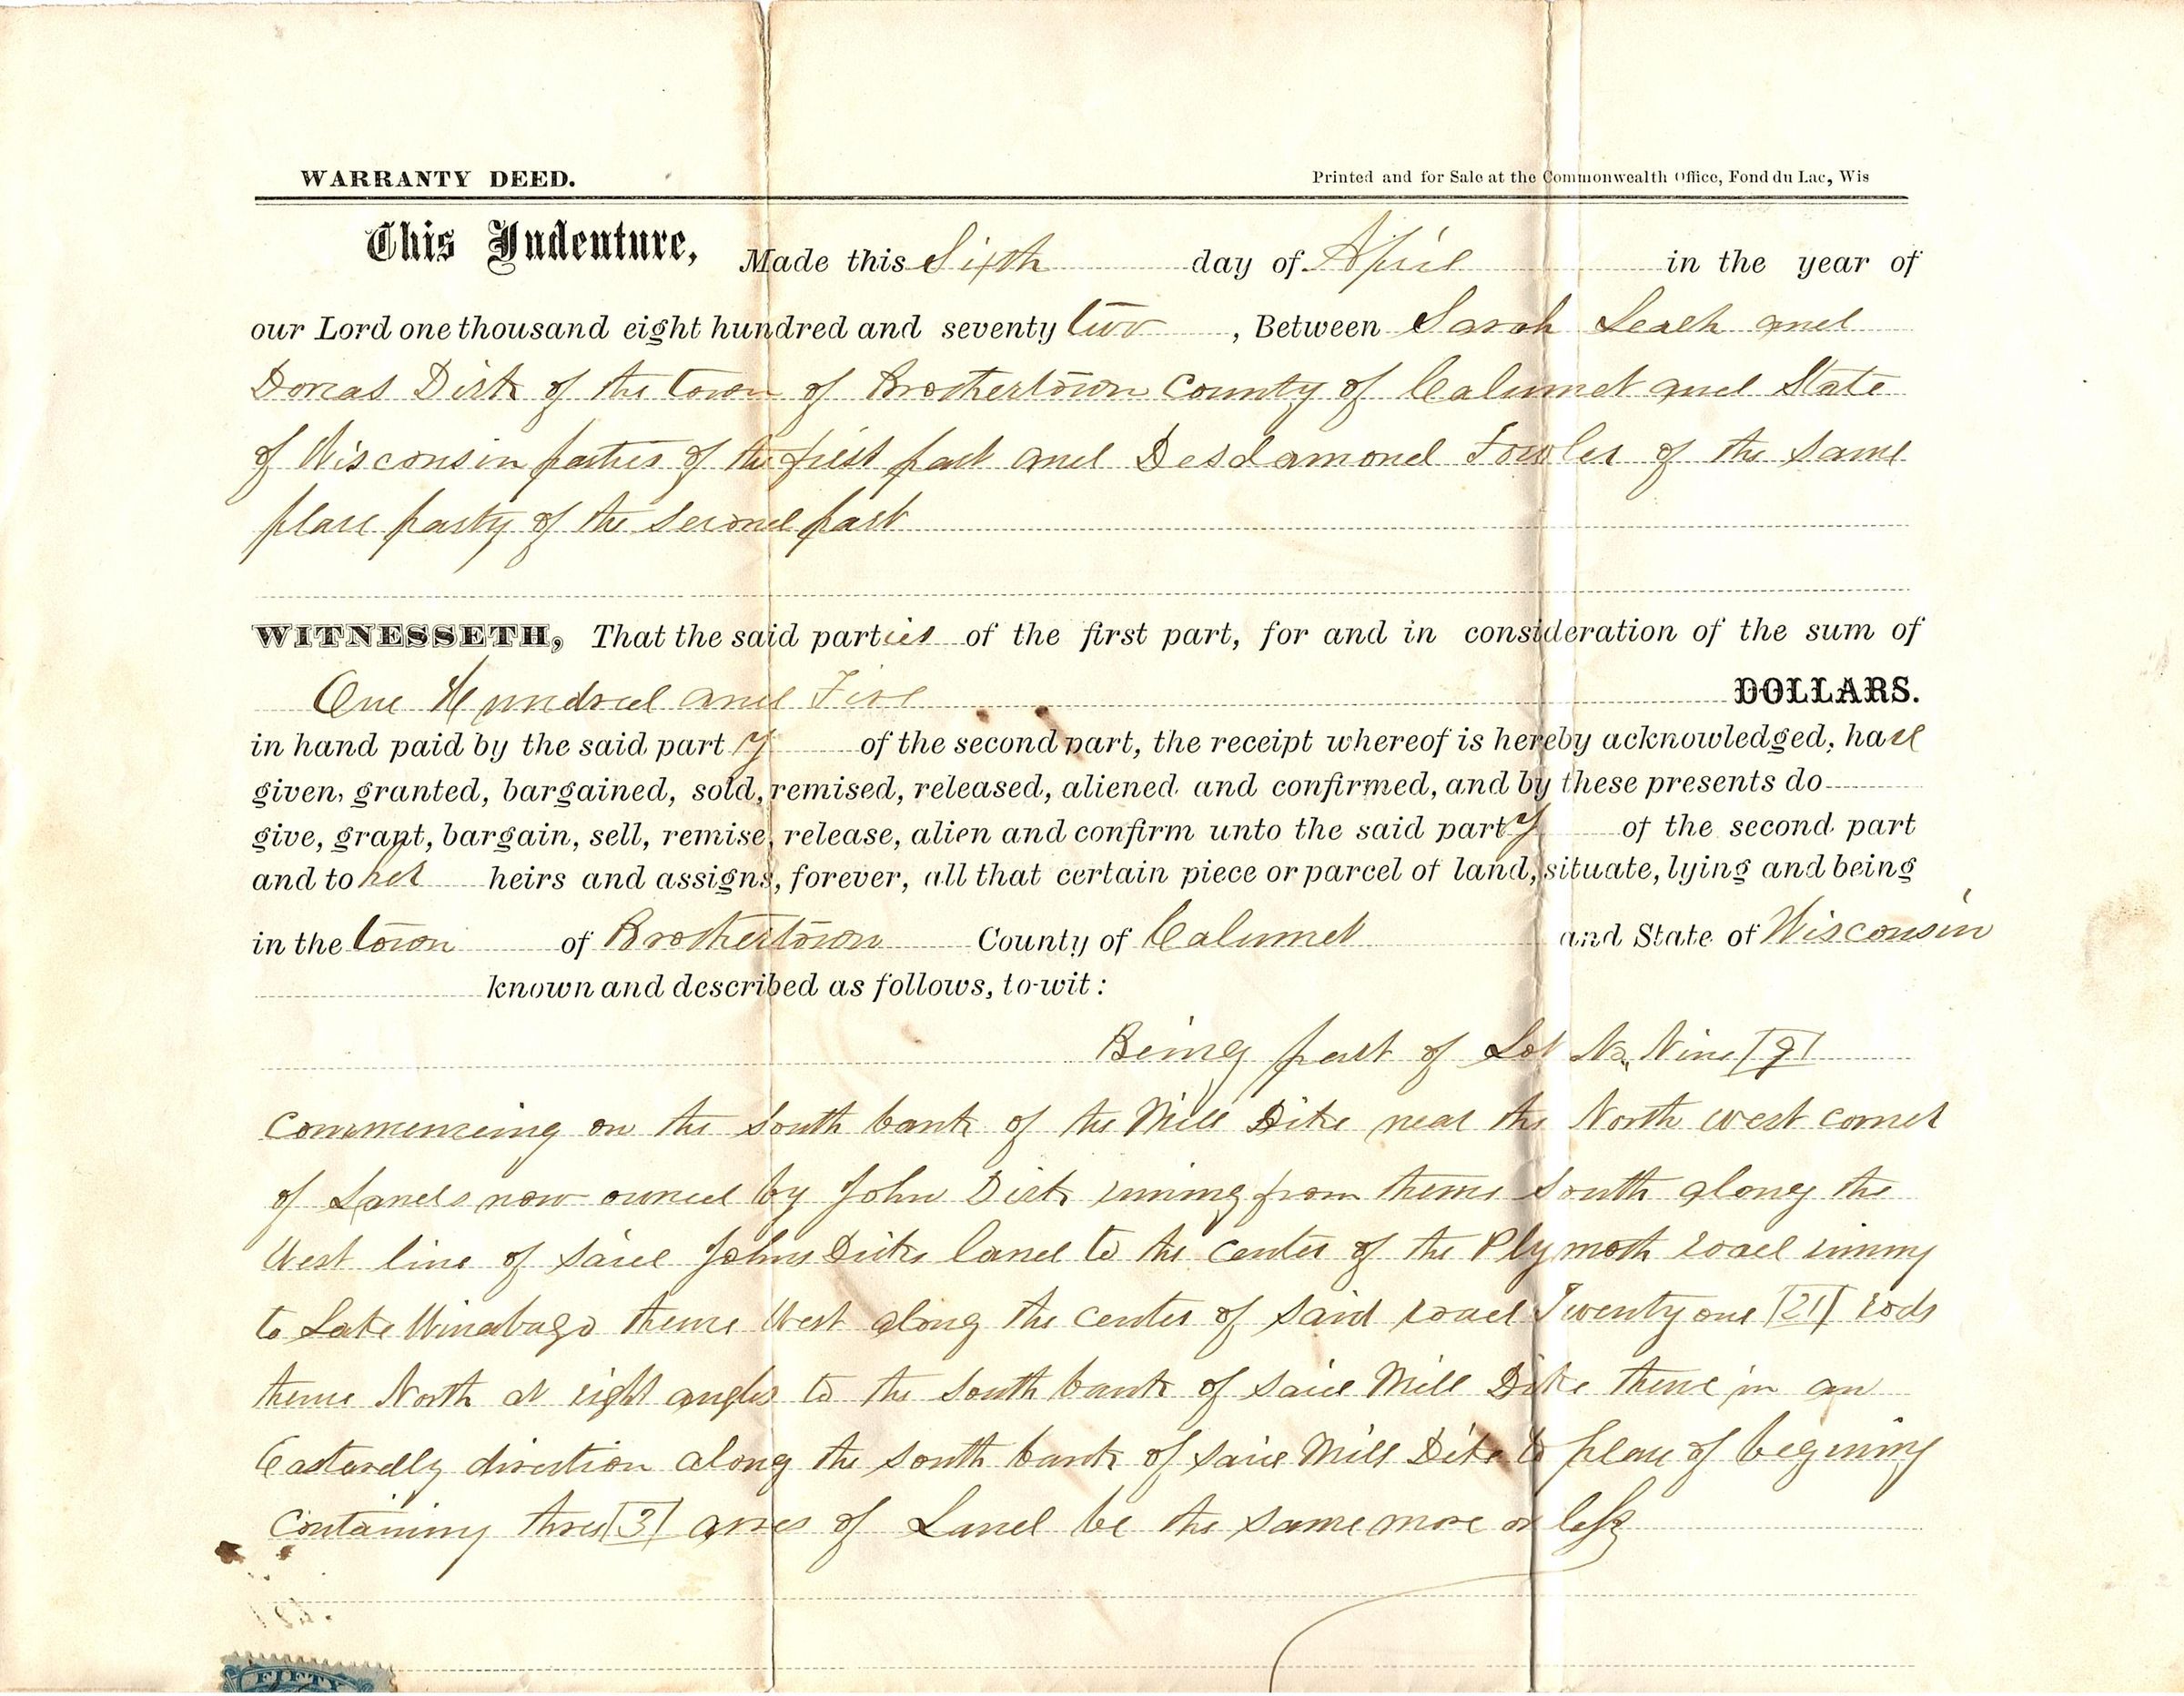 WARRANTY DEED.
Printed and for Sale at the Commonwealth Office, Fond du Lac, Wis
This Indenture, Made this Sixth day of April in the year of
our Lord one thousand eight hundred and seventy two, Between Sarah Leach and
Dorcas Dick of the town of Brothertown County of Calumet and State
of Wisconsin parties of the first part and Desdamond Fowler of the same
place party of the second part
WITNESSETH, That the said parties of the first part, for and in consideration of the sum of
One Hundred and Five DOLLARS.
in hand paid by the said party of the second part, the receipt whereof is hereby acknowledged, have
given, granted, bargained, sold, remised, released, aliened and confirmed, and by these presents do
give, grant, bargain, sell, remise, release, alien and confirm unto the said party of the second part
and to her heirs and assigns, forever, all that certain piece or parcel of land, situate, lying and being
in the town of Brothertown County of Calumet and State of Wisconsin
known and described as follows, to-wit:
Being part of Lot No,, Nine [9]
Commencing on the South bank of the Mill Dike near the North west corner
of Lands now owned by John Dick runing from thence South along the
West line of said Johns Dicks land to the center of the Plymoth road runing
to Lake Winabago thence West along the center of said road Twenty one [21] rods
thence North at right angles to the South bank of said Mill Dike thence in an
Eastardly direction along the south bank of said Mill Dike to place of begining
Containing three [3] acres of Land be the same more or less
FIFTY